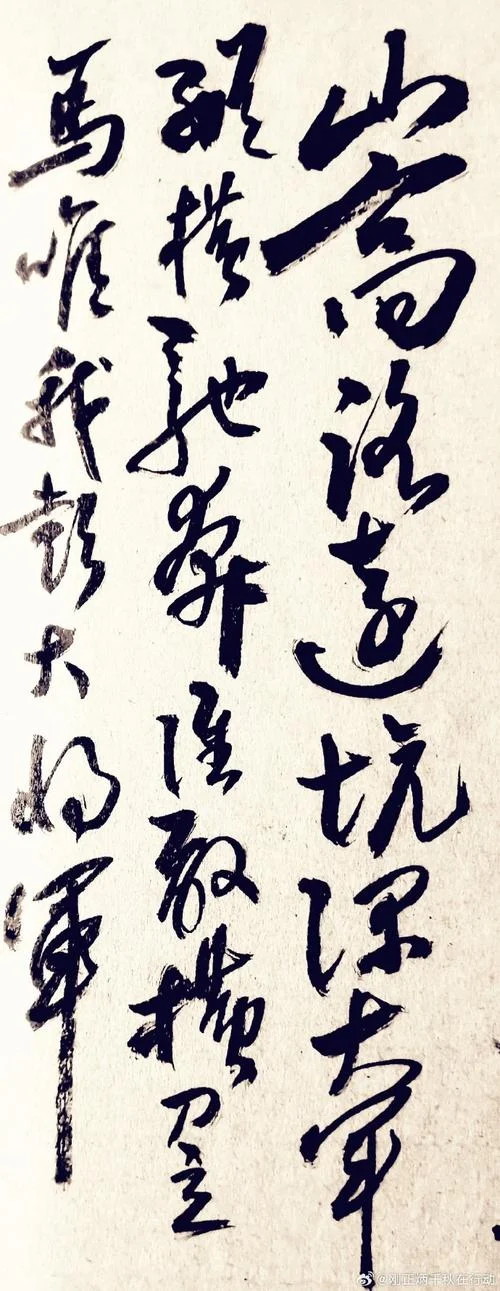 山高路遠坑深大軍
縱横馳奔誰敢横刀立
馬唯我彭大将軍
@刚正炳千秋在行动